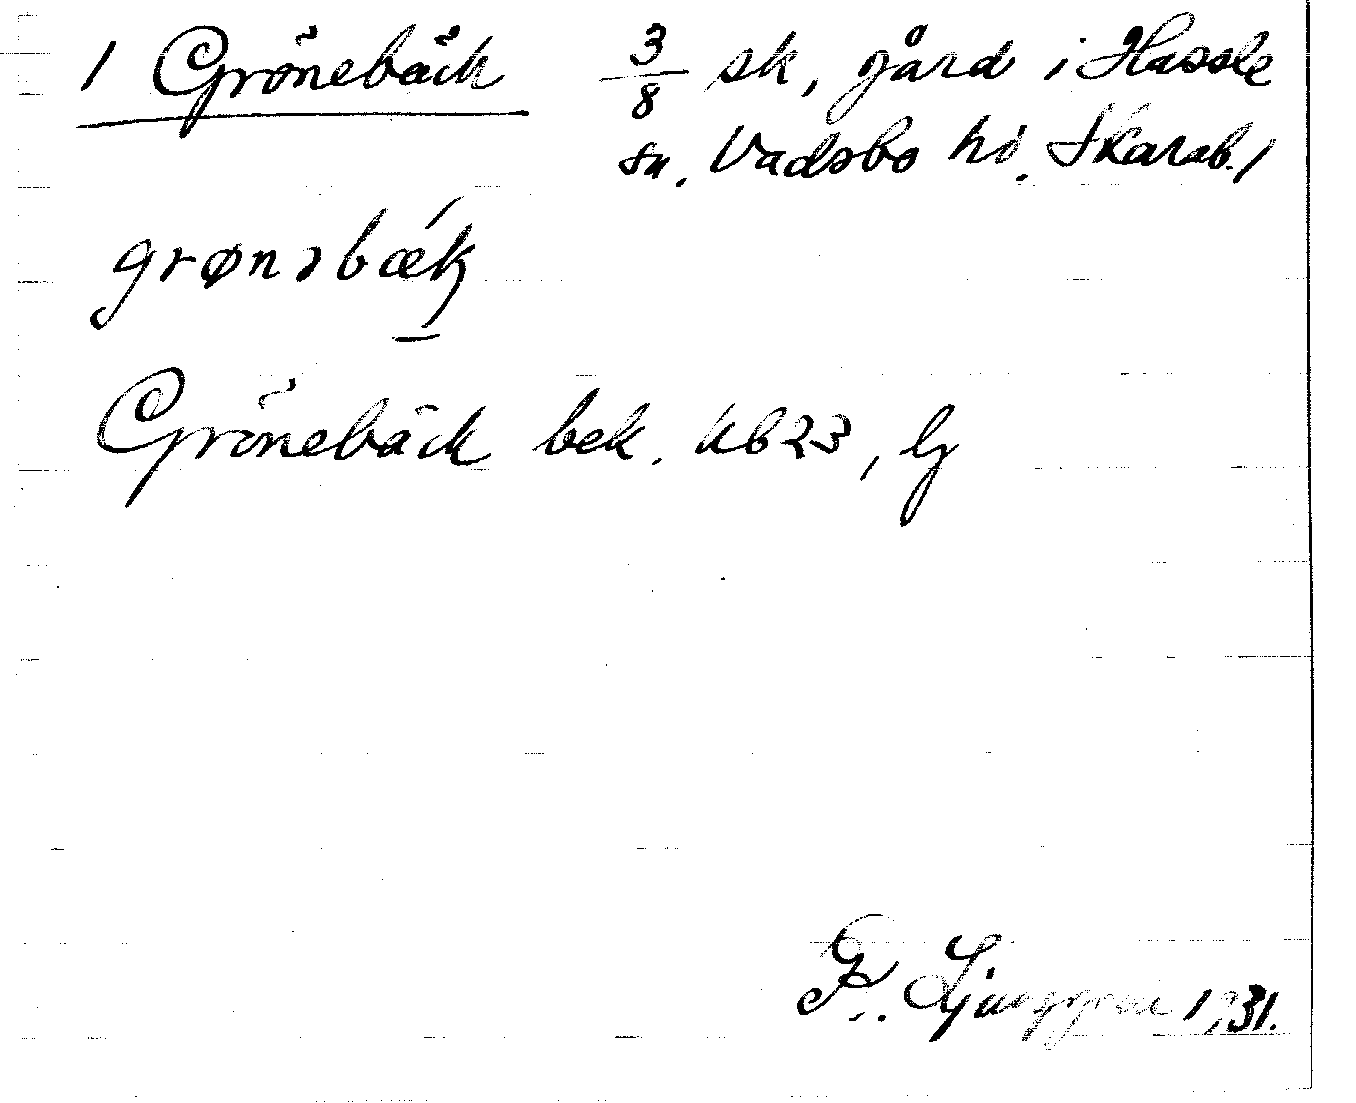 1 Grönebäck 3/8 sk, gård i Hassle
sn. Vadsbo hd. Skarab. /
grønəbǽk
Grönebäck bek. kb23, lj
F. Ljunggren 1931.